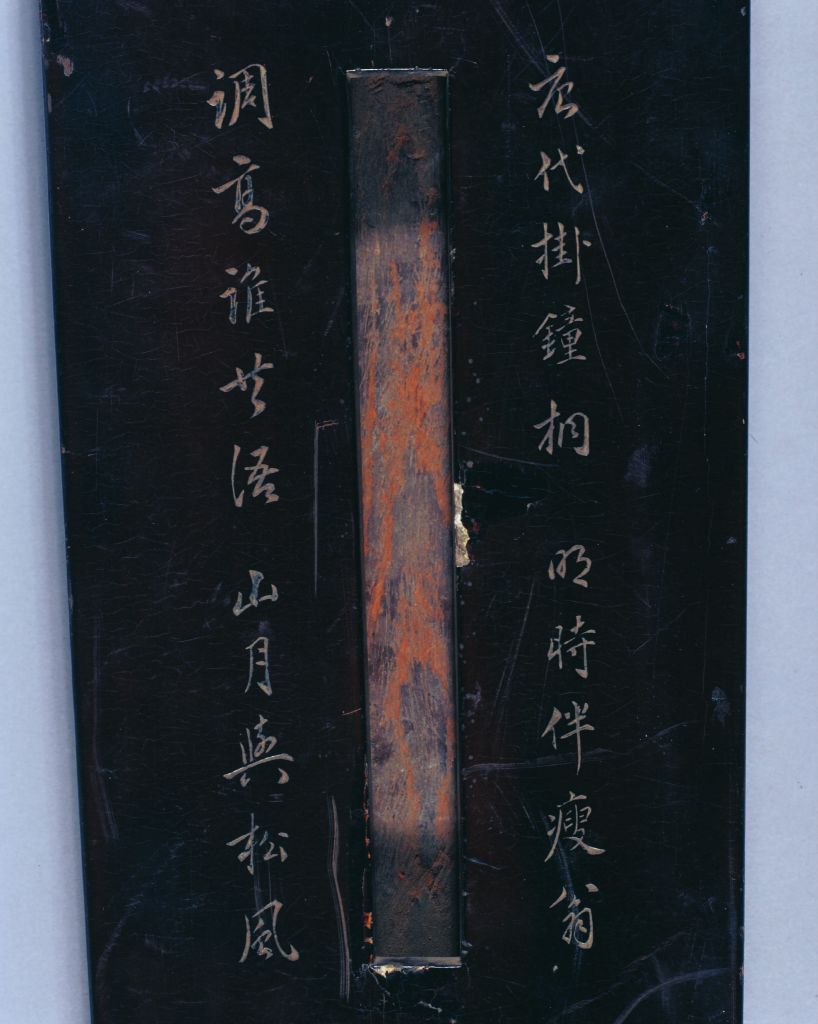 唐代掛鐘桐 明時伴瘦翁
調高誰共語 山月與松風